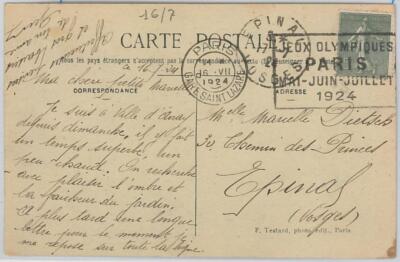 16/7
CARTE POSTALE
Tous les pays étrangers n'acceptent pas la correspondance au recto
CORRESPONDANCE
ce 16/7/24
Ma chère petite Marcelle
Je suis à Ville d'Avray
depuis dimanche, il y fait
un temps superbe, un
peu chaud. On recherche
avec plaisir l'ombre et
la fraîcheur du jardin.
plus tard une longue
lettre pour le moment je
me repose sur toute la ligne
Affectueux
et gros baisers
PARIS
16 - VII
1924
GARE SAINT LAZARE
EPINAL
VOSGES
JEUX OLYMPIQUES
PARIS
MAI-JUIN-JUILLET
1924
Melle Marcelle Dietsch
Chemin des Princes
Epinal
(Vosges)
F. Testard, photo. édit., Paris